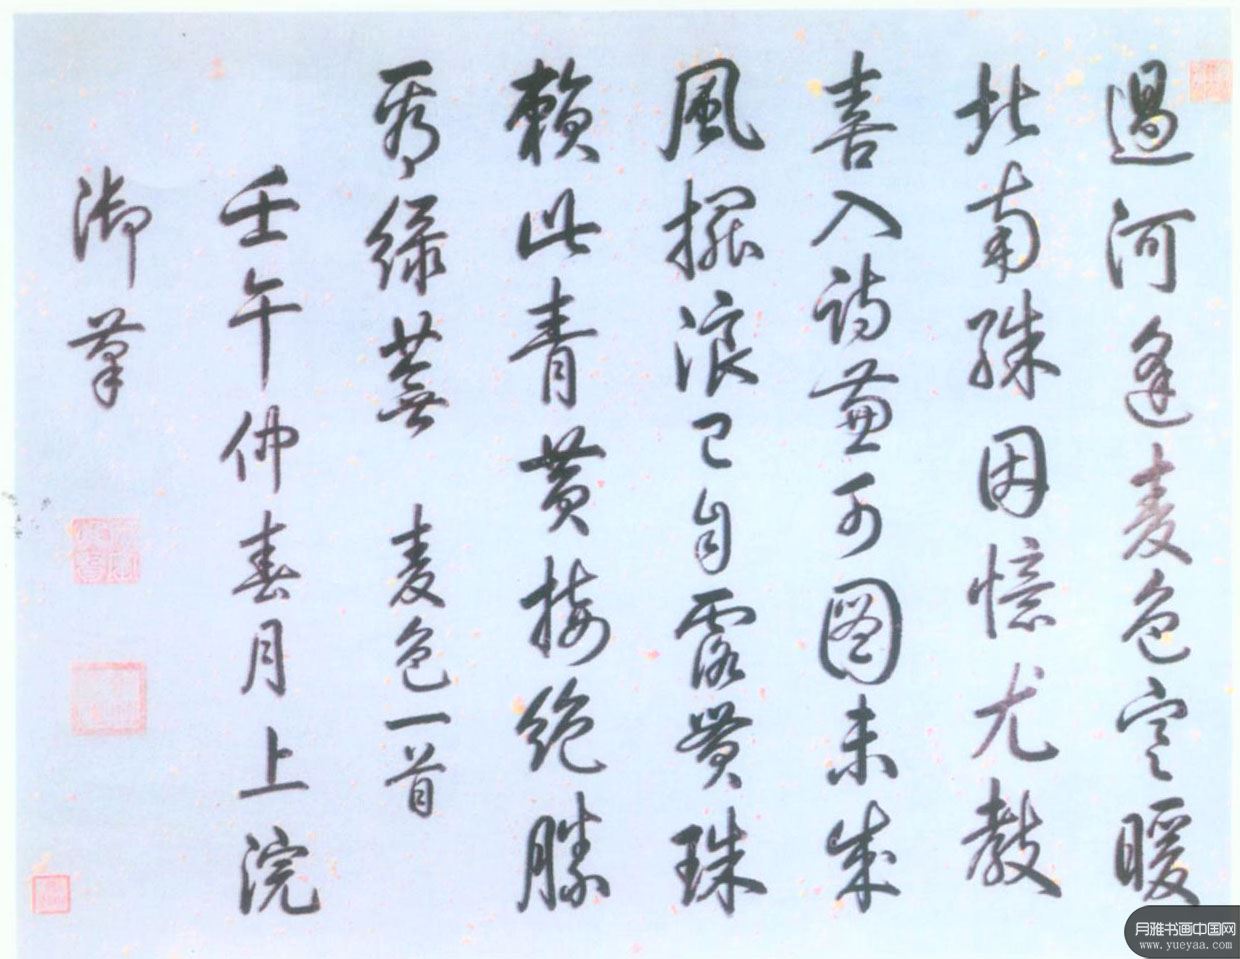 過河逢麦色寒暖
北南殊因憶尤教
喜入詩兼可圖未成
風擺浪已自露貫珠
賴此青黃接絶勝
看綠蕪 麦色一首
壬午仲春月上浣
御筆
月雅书画中国网
www.yueyaa.com